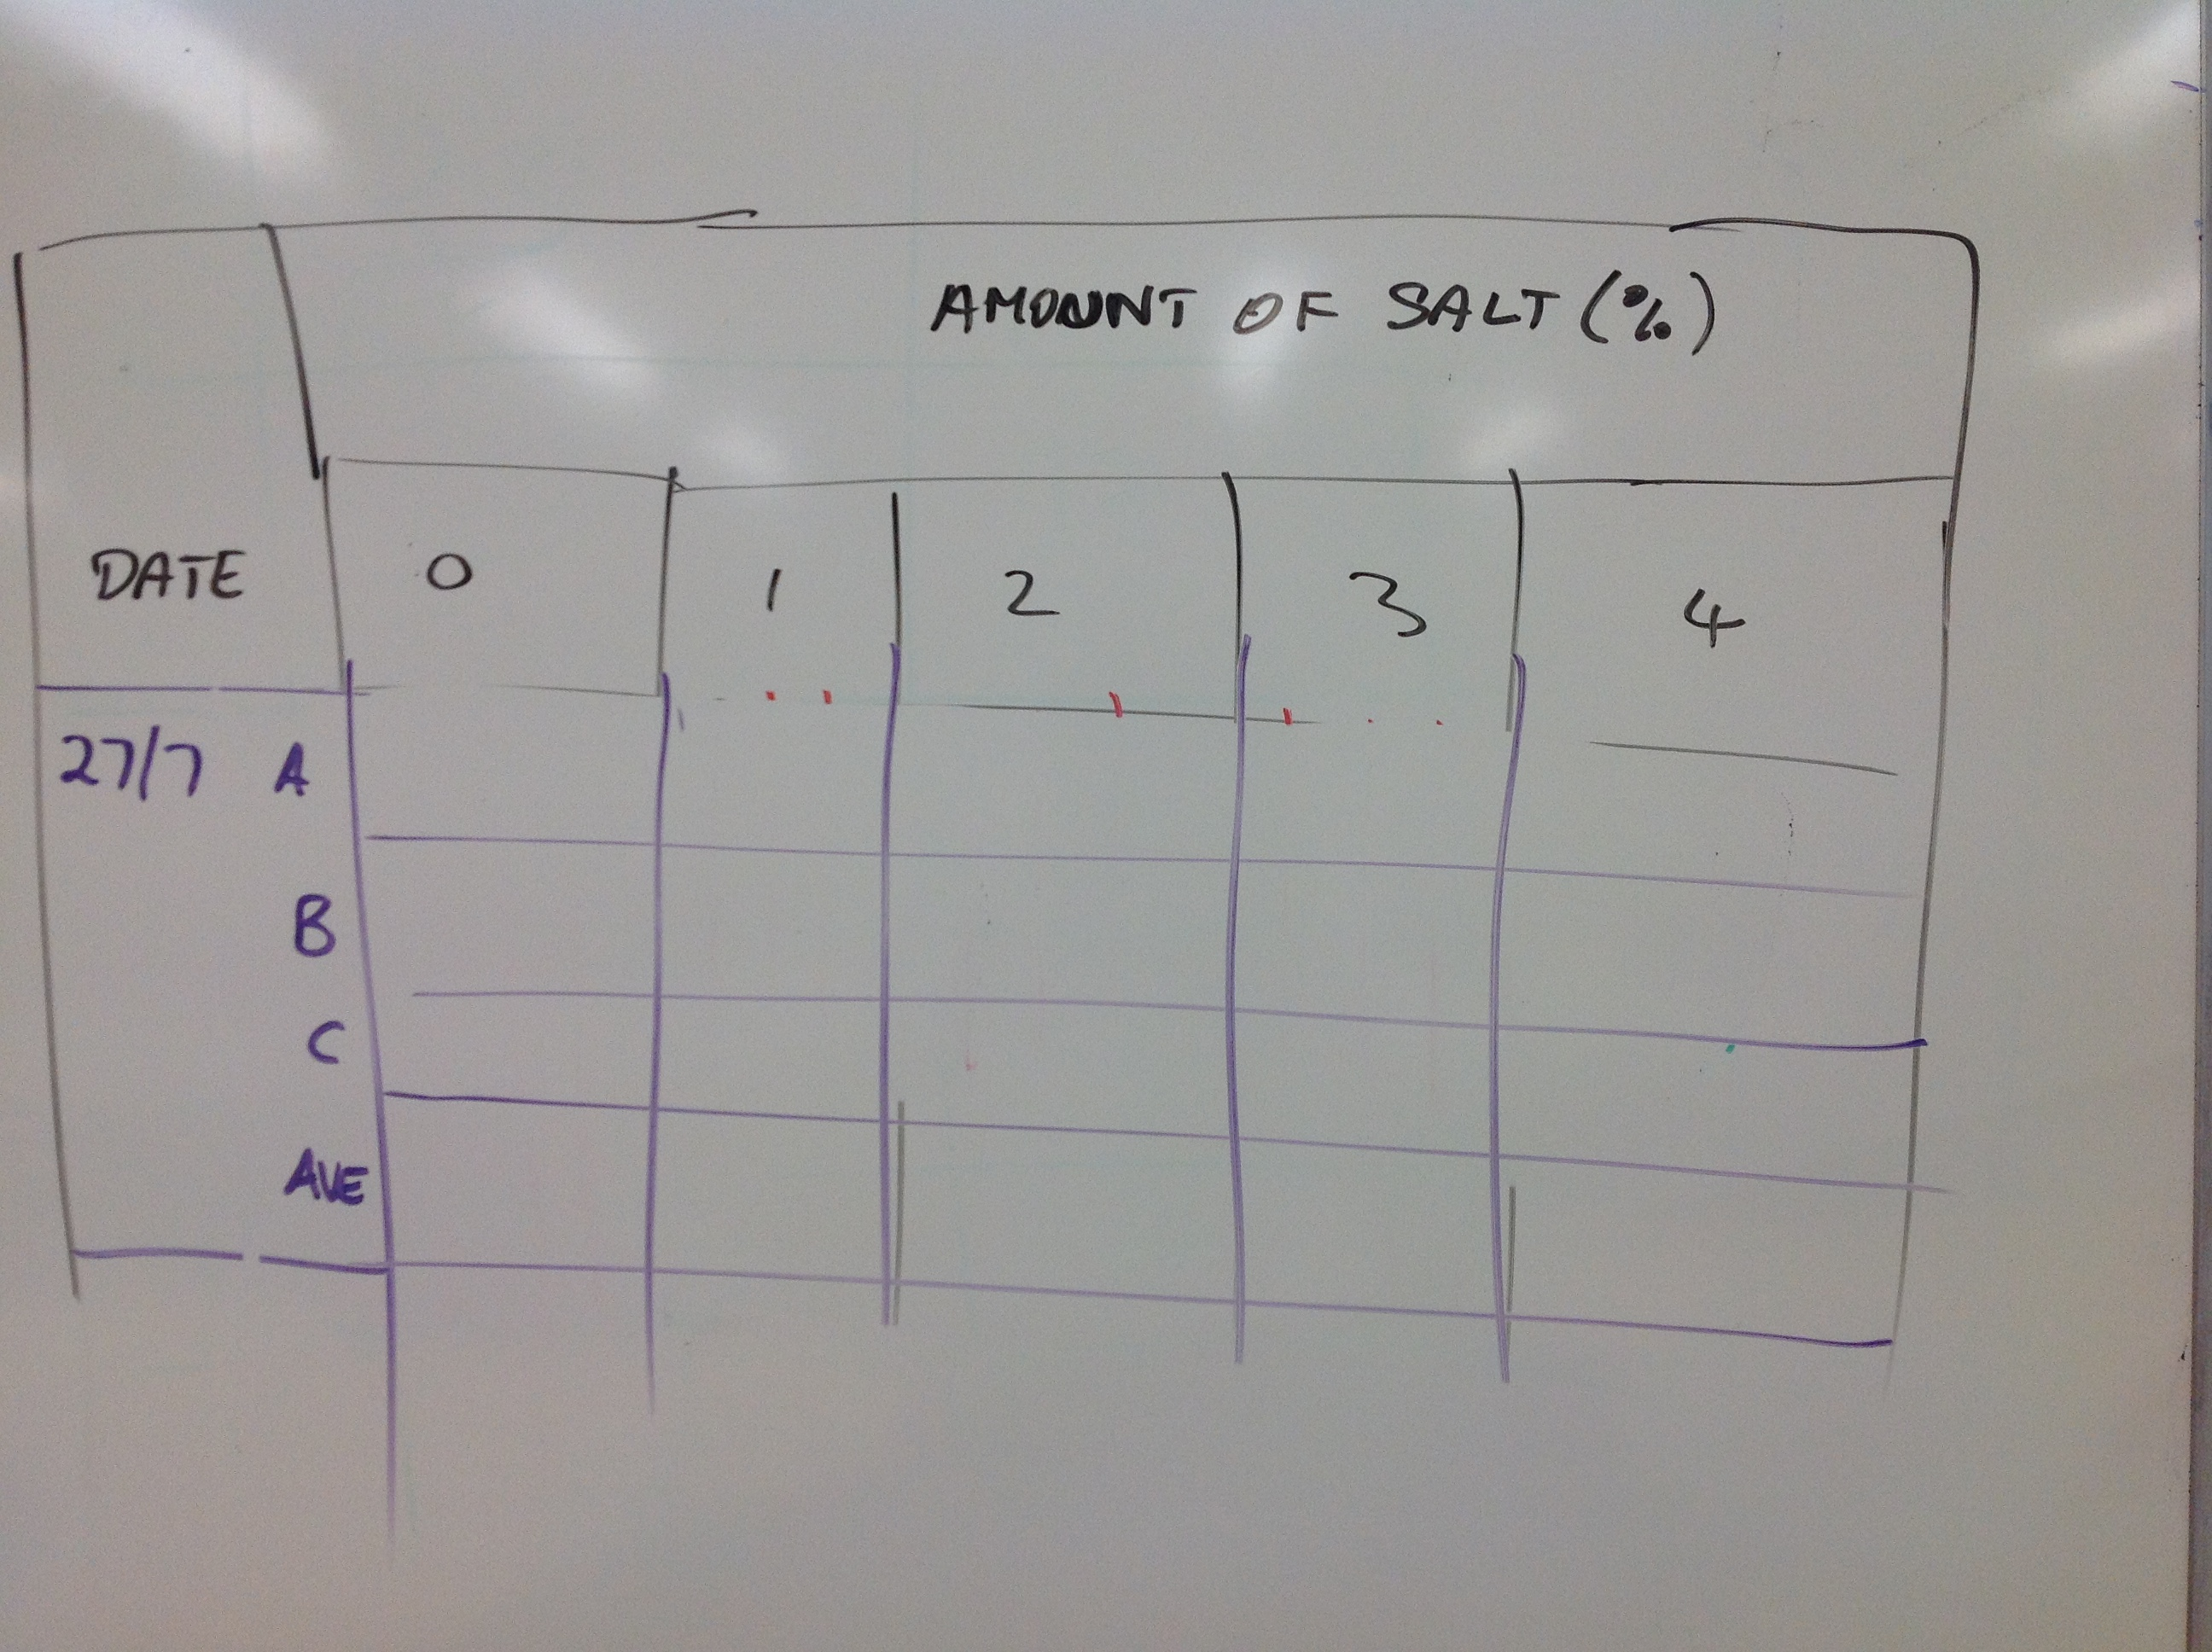 AMOUNT OF SALT (%)
DATE 0 1 2 3 4
27/7 A
B
C
AVE